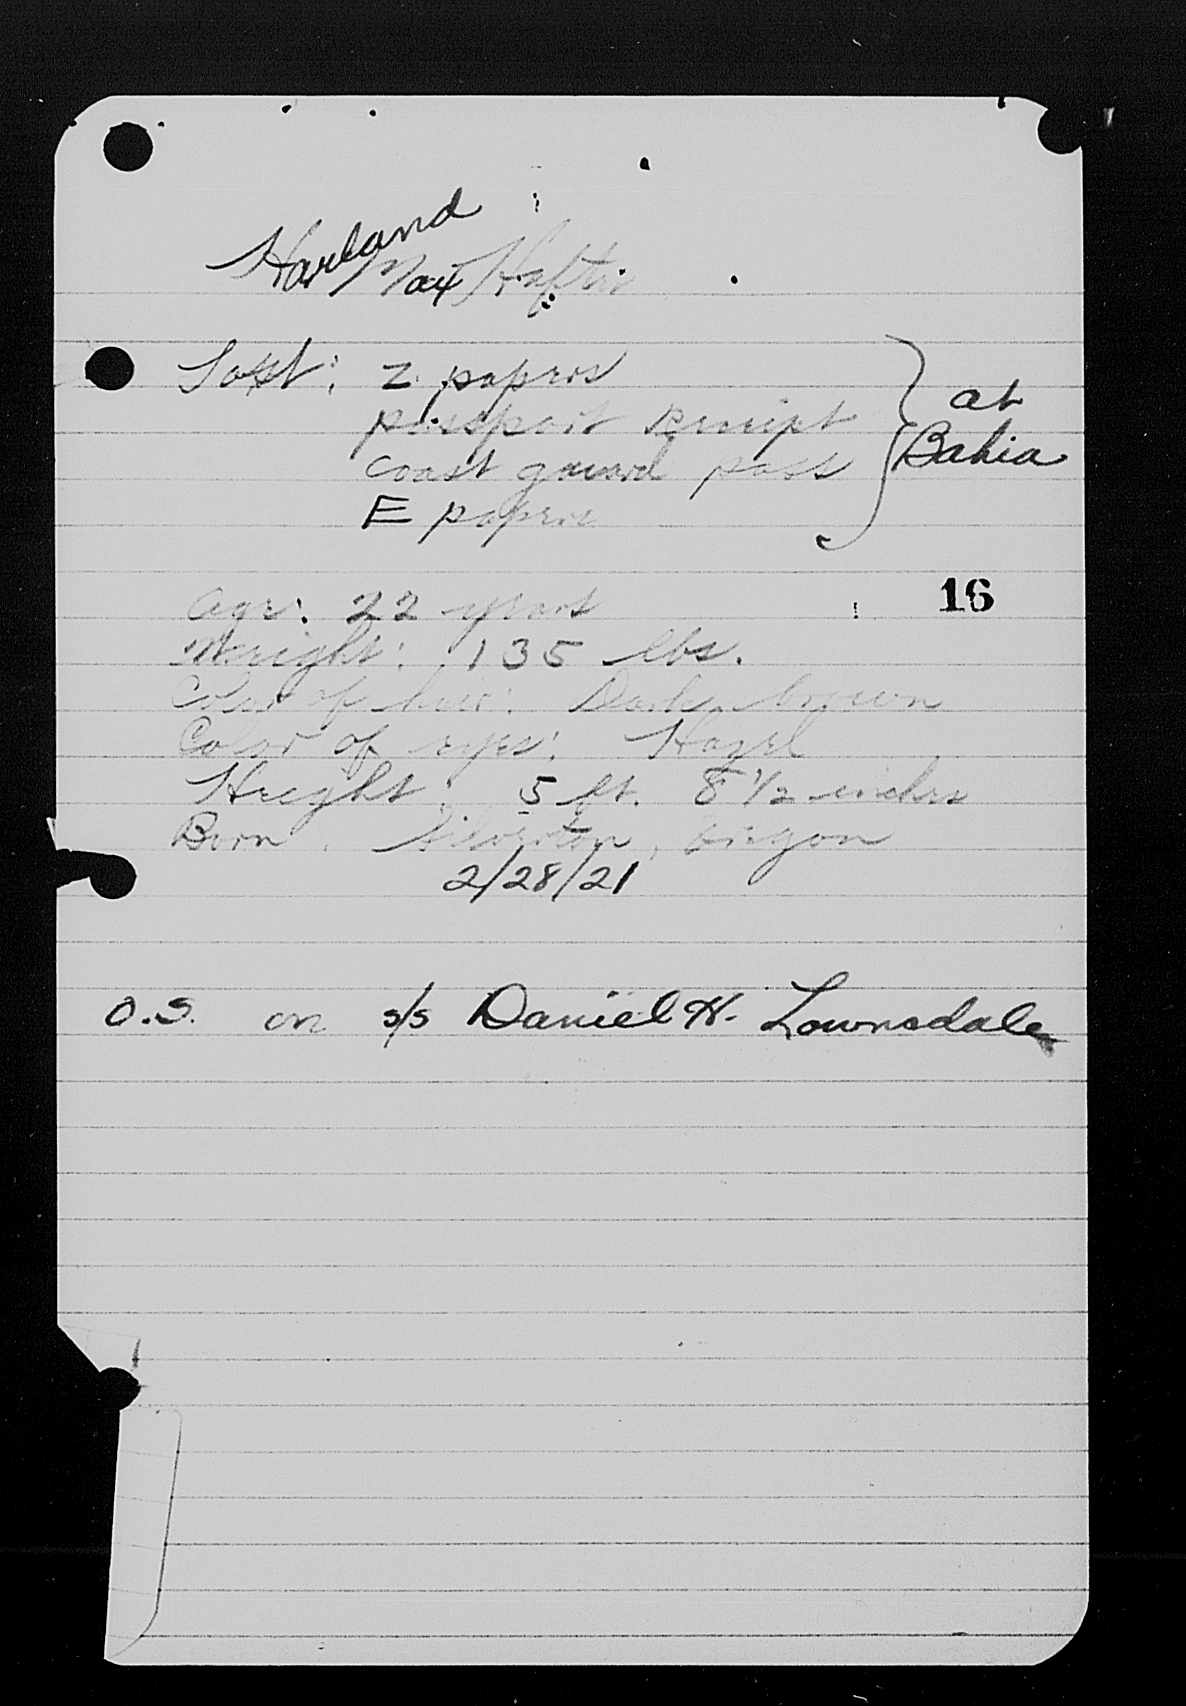 Harland
Max
Lost: Z. papers
passport receipt
coast guard pass
E papers
at
Bahia
16
Age: 22 years
Weight: 135 lbs.
Color of hair: Dark brown
Color of eyes: Hazel
Height: 5 ft. 8 1/2 inches
Born. Silverton, Oregon
2/28/21
O.S. on s/s Daniel H. Lownsdale